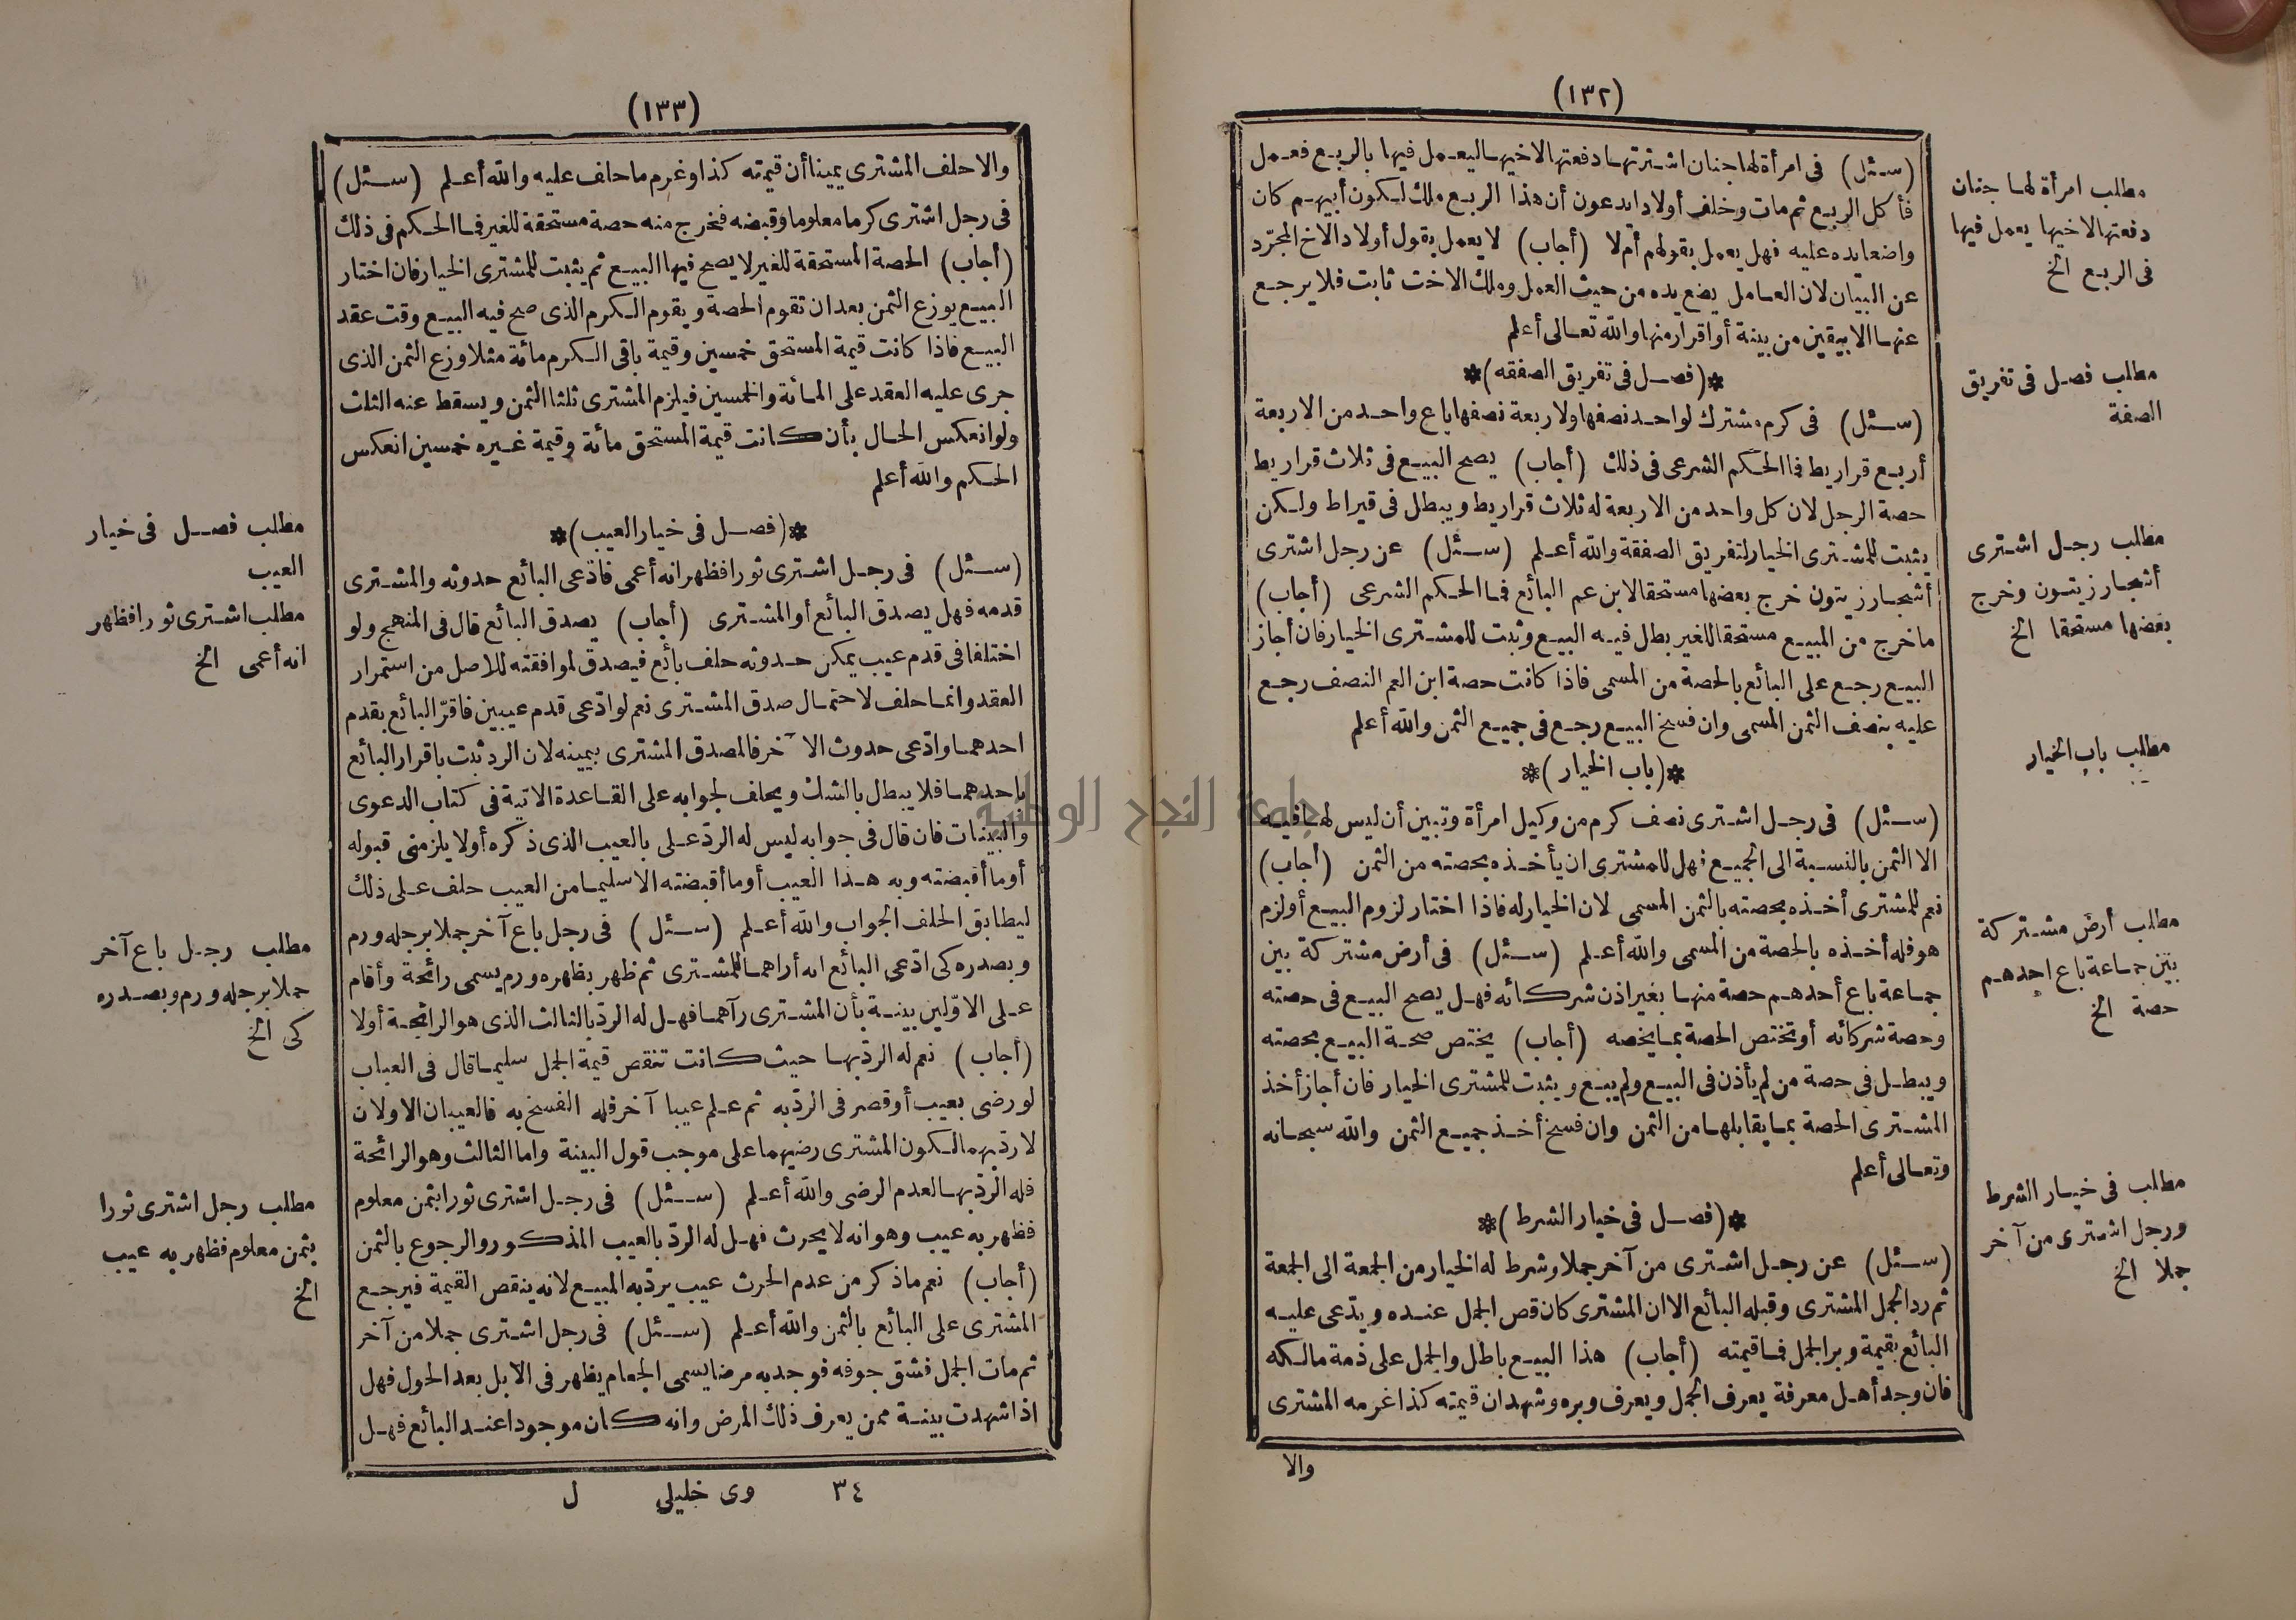 (١٣٢)
(سئل) فى امرأة لها جنان اشترتها دفعتها لاخيها ليعمل فيها بالربع فعمل
فأكل الربع ثم مات وخلف أولادا يدعون أن هذا الربع ملك لكون أبيهم كان
واضعا يده عليه فهل يعمل بقولهم أم لا (أجاب) لا يعمل بقول أولاد الاخ المجرّد
عن البيان لان العامل يضع يده من حيث العمل وملك الاخت ثابت فلا يرجع
عنها الا بيقين من بينة أو اقرار منها والله تعالى أعلم
*(فصل فى تفريق الصفقه)*
(سئل) فى كرم مشترك لواحد نصفها ولاربعة نصفها باع واحد من الاربعة
أربع قراريط فما الحكم الشرعى فى ذلك (أجاب) يصح البيع فى ثلاث قراريط
حصة الرجل لان كل واحد من الاربعة له ثلاث قراريط ويبطل فى قيراط ولكن
يثبت للمشترى الخيار لتفريق الصفقة والله أعلم (سئل) عن رجل اشترى
أشجار زيتون خرج بعضها مستحقا لابن عم البائع فما الحكم الشرعى (أجاب)
ما خرج من المبيع مستحقا للغير بطل فيه البيع وثبت للمشترى الخيار فان أجاز
البيع رجع على البائع بالحصة من المسمى فاذا كانت حصة ابن العم النصف رجع
عليه بنصف الثمن المسمى وان فسخ البيع رجع فى جميع الثمن والله أعلم
*(باب الخيار)*
(سئل) فى رجل اشترى نصف كرم من وكيل امرأة وتبين أن ليس لها فيه
الا الثمن بالنسبة الى الجميع فهل للمشترى ان يأخذه بحصته من الثمن (أجاب)
نعم للمشترى أخذه بحصته بالثمن المسمى لان الخيار له فاذا اختار لزوم البيع أو لزم
هو فله أخذه بالحصة من المسمى والله أعلم (سئل) فى أرض مشتركة بين
جماعة باع أحدهم حصة منها بغير اذن شركائه فهل يصح البيع فى حصته
وحصة شركائه أو تختص الحصة بما يخصه (أجاب) يختص صحة البيع بحصته
ويبطل فى حصة من لم يأذن فى البيع ولم يبع ويثبت للمشترى الخيار فان أجاز أخذ
المشترى الحصة بما يقابلها من الثمن وان فسخ أخذ جميع الثمن والله سبحانه
وتعالى أعلم
*(فصل فى خيار الشرط)*
(سئل) عن رجل اشترى من آخر جملا وشرط له الخيار من الجمعة الى الجمعة
ثم رد الجمل المشترى وقبله البائع الا ان المشترى كان قص الجمل عنده ويدّعى عليه
البائع بقيمة وبر الجمل فما قيمته (أجاب) هذا البيع باطل والجمل على ذمة مالكه
فان وجد أهل معرفة يعرف الجمل ويعرف وبره وشهد ان قيمته كذا غرمه المشترى
والا
مطلب امرأة لها جنان
دفعتها لاخيها يعمل فيها
فى الربع الخ
مطلب فصل فى تفريق
الصفة
مطلب رجل اشترى
أشجار زيتون وخرج
بعضها مستحقا الخ
مطلب باب الخيار
مطلب أرض مشتركة
بين جماعة باع احدهم
حصة الخ
مطلب فى خيار الشرط
ورجل اشترى من آخر
جملا الخ
(١٣٣)
والا حلف المشترى يمينا أن قيمته كذا وغرم ما حلف عليه والله أعلم (سئل)
فى رجل اشترى كرما معلوما وقبضه فخرج منه حصة مستحقة للغير فما الحكم فى ذلك
(أجاب) الحصة المستحقة للغير لا يصح فيها البيع ثم يثبت للمشترى الخيار فان اختار
البيع يوزع الثمن بعد ان تقوم الحصة ويقوم الكرم الذى صح فيه البيع وقت عقد
البيع فاذا كانت قيمة المستحق خمسين وقيمة باقى الكرم مائة مثلا وزع الثمن الذى
جرى عليه العقد على المائة والخمسين فيلزم المشترى ثلثا الثمن ويسقط عنه الثلث
ولو انعكس الحال بأن كانت قيمة المستحق مائة وقيمة غيره خمسين انعكس
الحكم والله أعلم
*(فصل فى خيار العيب)*
(سئل) فى رجل اشترى ثورا فظهر انه أعمى فادّعى البائع حدوثه والمشترى
قدمه فهل يصدق البائع أو المشترى (أجاب) يصدق البائع قال فى المنهج ولو
اختلفا فى قدم عيب يمكن حدوثه حلف بائع فيصدق لموافقته للاصل من استمرار
العقد وانما حلف لاحتمال صدق المشترى نعم لو ادّعى قدم عيبين فاقرّ البائع بقدم
احدهما وادّعى حدوث الآخر فالمصدق المشترى بيمينه لان الرد ثبت باقرار البائع
باحدهما فلا يبطل بالشك ويحلف لجوابه على القاعدة الاتية فى كتاب الدعوى
والبينات فان قال فى جوابه ليس له الردّ على بالعيب الذى ذكره أو لا يلزمنى قبوله
أو ما أقبضته وبه هذا العيب أو ما أقبضته الا سليما من العيب حلف على ذلك
ليطابق الحلف الجواب والله أعلم (سئل) فى رجل باع آخر جملا برجله ورم
وبصدره كى ادّعى البائع انه أراهما للمشترى ثم ظهر بظهره ورم يسمى رائحة وأقام
على الاوّلين بينة بأن المشترى رآهما فهل له الردّ بالثالث الذى هو الرائحة أو لا
(أجاب) نعم له الردّ بها حيث كانت تنقص قيمة الجمل سليما قال فى العباب
لو رضى بعيب أو قصر فى الردّ به ثم علم عيبا آخر فله الفسخ به فالعيبان الاولان
لا ردّ بهما لكون المشترى رضيهما على موجب قول البينة واما الثالث وهو الرائحة
فله الردّ بها لعدم الرضى والله أعلم (سئل) فى رجل اشترى ثورا بثمن معلوم
فظهر به عيب وهو انه لا يحرث فهل له الردّ بالعيب المذكور والرجوع بالثمن
(أجاب) نعم ما ذكر من عدم الحرث عيب يردّ به المبيع لانه ينقص القيمة فيرجع
المشترى على البائع بالثمن والله أعلم (سئل) فى رجل اشترى جملا من آخر
ثم مات الجمل فشق جوفه فوجد به مرضا يسمى الجعام يظهر فى الابل بعد الحول فهل
اذا شهدت بينة ممن يعرف ذلك المرض وانه كان موجودا عند البائع فهل
٣٤ وى خليلي ل
مطلب فصل فى خيار
العيب
مطلب اشترى ثورا فظهر
انه أعمى الخ
مطلب رجل باع آخر
جملا برجله ورم وبصدره
كى الخ
مطلب رجل اشترى ثورا
بثمن معلوم فظهر به عيب
الخ
جامعة النجاح الوطنية